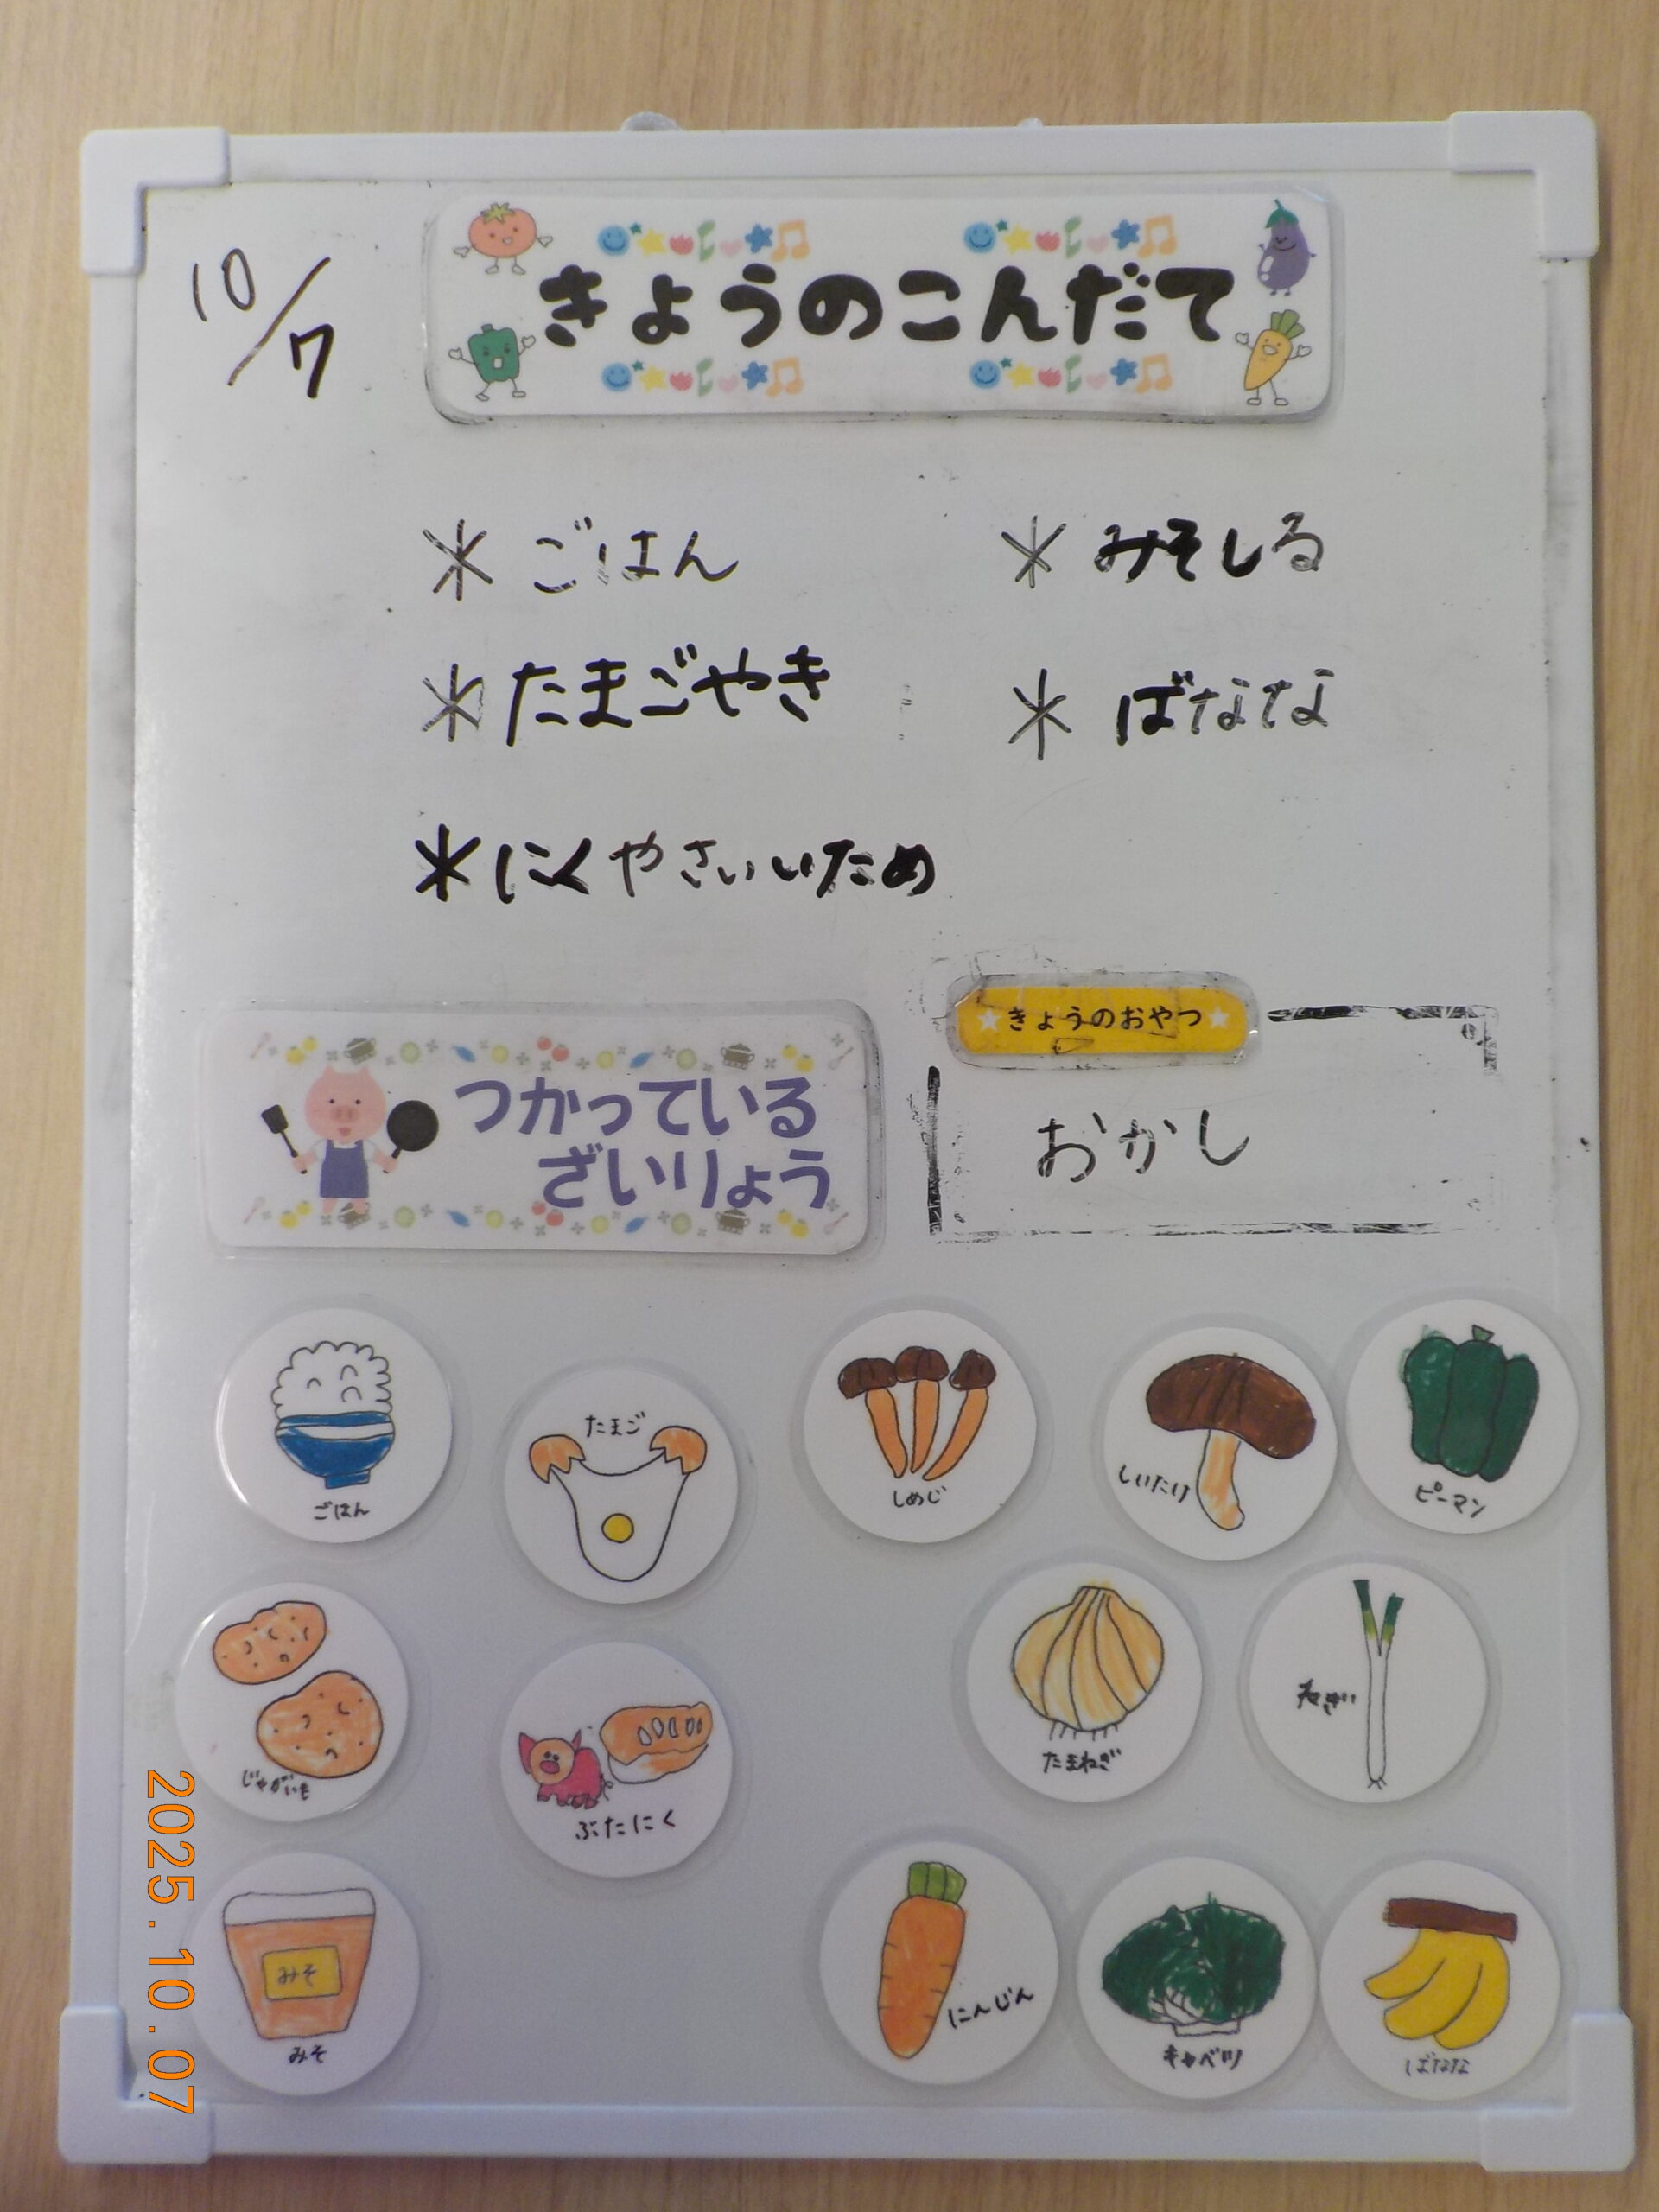 10/7
きょうのこんだて
* ごはん
* みそしる
* たまごやき
* ばなな
* にくやさいいため
きょうのおやつ
おかし
つかっている
ざいりょう
ごはん
たまご
しめじ
しいたけ
ピーマン
じゃがいも
ぶたにく
たまねぎ
ねぎ
みそ
みそ
にんじん
キャベツ
ばなな
2025.10.07